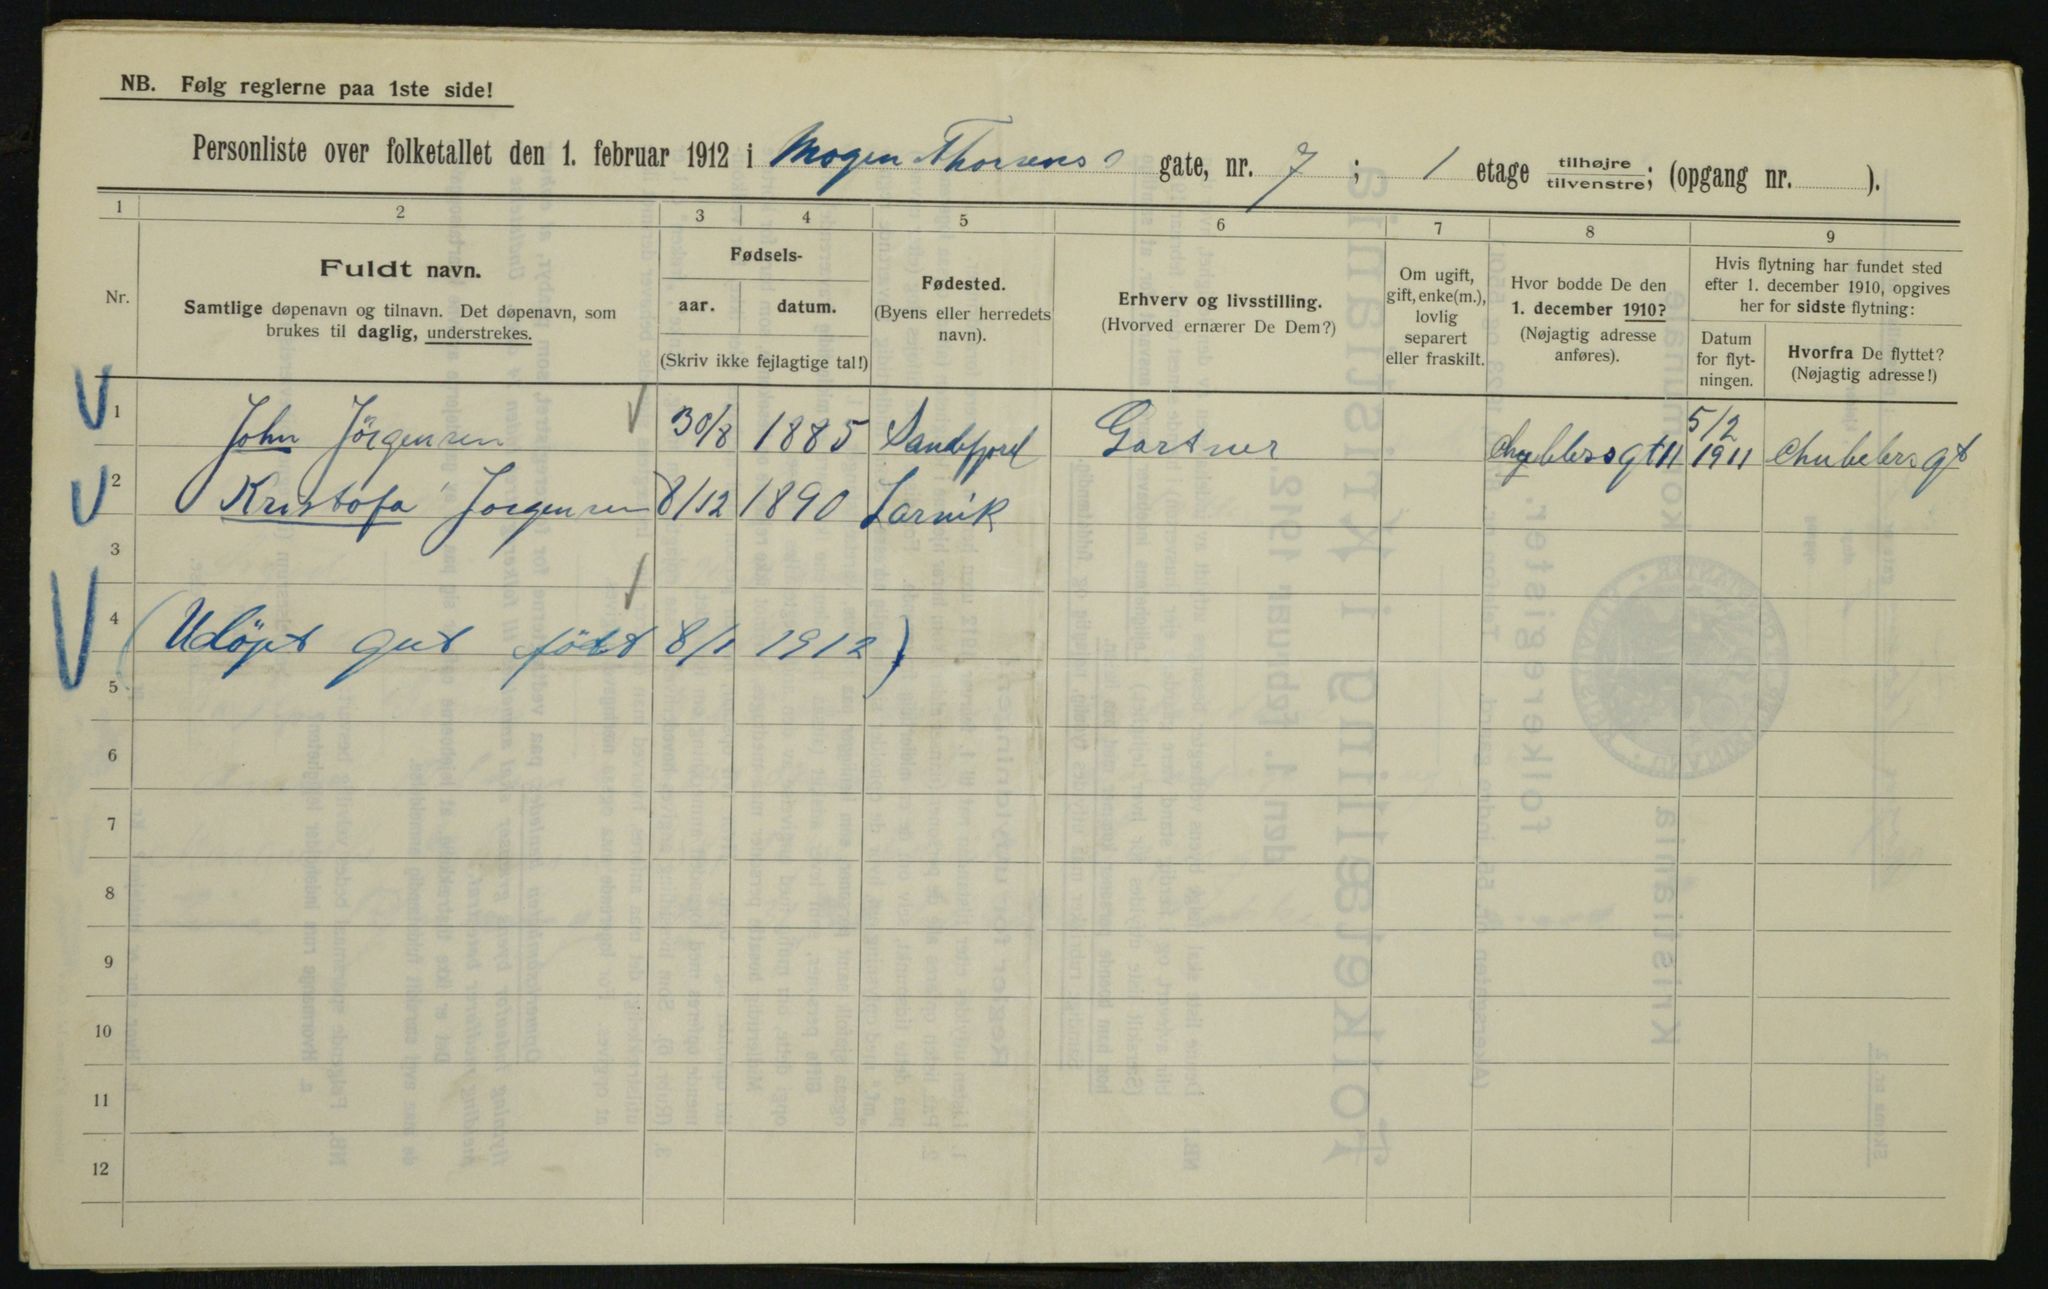 NB. Følg reglerne paa 1ste side!
Personliste over folketallet den 1. februar 1912 i Mogen Thorsens gate, nr. 7; 1 etage tilhøjre/tilvenstre; (opgang nr. ).
1 2 3 4 5 6 7 8 9
Nr.
Fuldt navn.
Samtlige døpenavn og tilnavn. Det døpenavn, som
brukes til daglig, understrekes.
Fødsels-
aar. datum.
(Skriv ikke fejlagtige tal!)
Fødested.
(Byens eller herredets
navn).
Erhverv og livsstilling.
(Hvorved ernærer De Dem?)
Om ugift,
gift, enke(m.),
lovlig
separert
eller fraskilt.
Hvor bodde De den
1. december 1910?
(Nøjagtig adresse
anføres).
Hvis flytning har fundet sted
efter 1. december 1910, opgives
her for sidste flytning:
Datum
for flyt-
ningen.
Hvorfra De flyttet?
(Nøjagtig adresse!)
1 John Jörgensen 30/8 1885 Sandefjord Gartner gt 11 5/2 1911 gt
2 Kristofa Jorgensen 8/12 1890 Larvik
3
4 (Udöpt gut födt 8/1 1912)
5
6
7
8
9
10
11
12